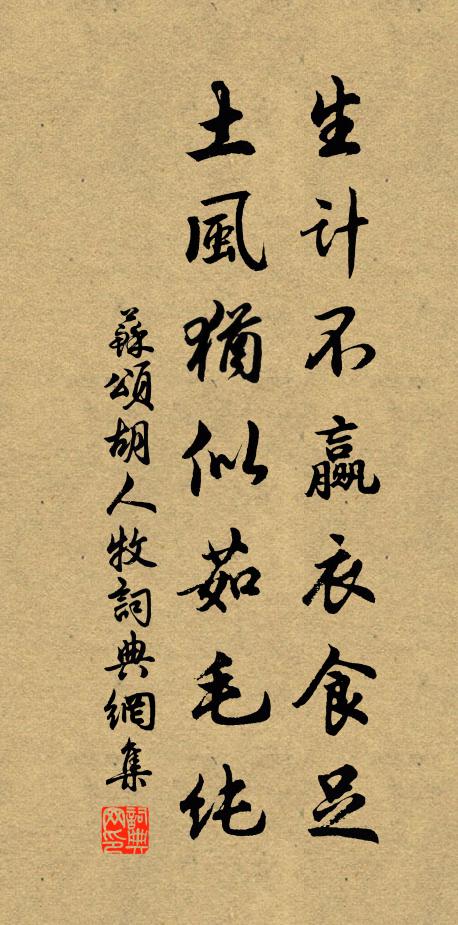 生计不赢衣食足
土風猶似茹毛纯
蘇頌胡人牧詞典網集
詞典网印